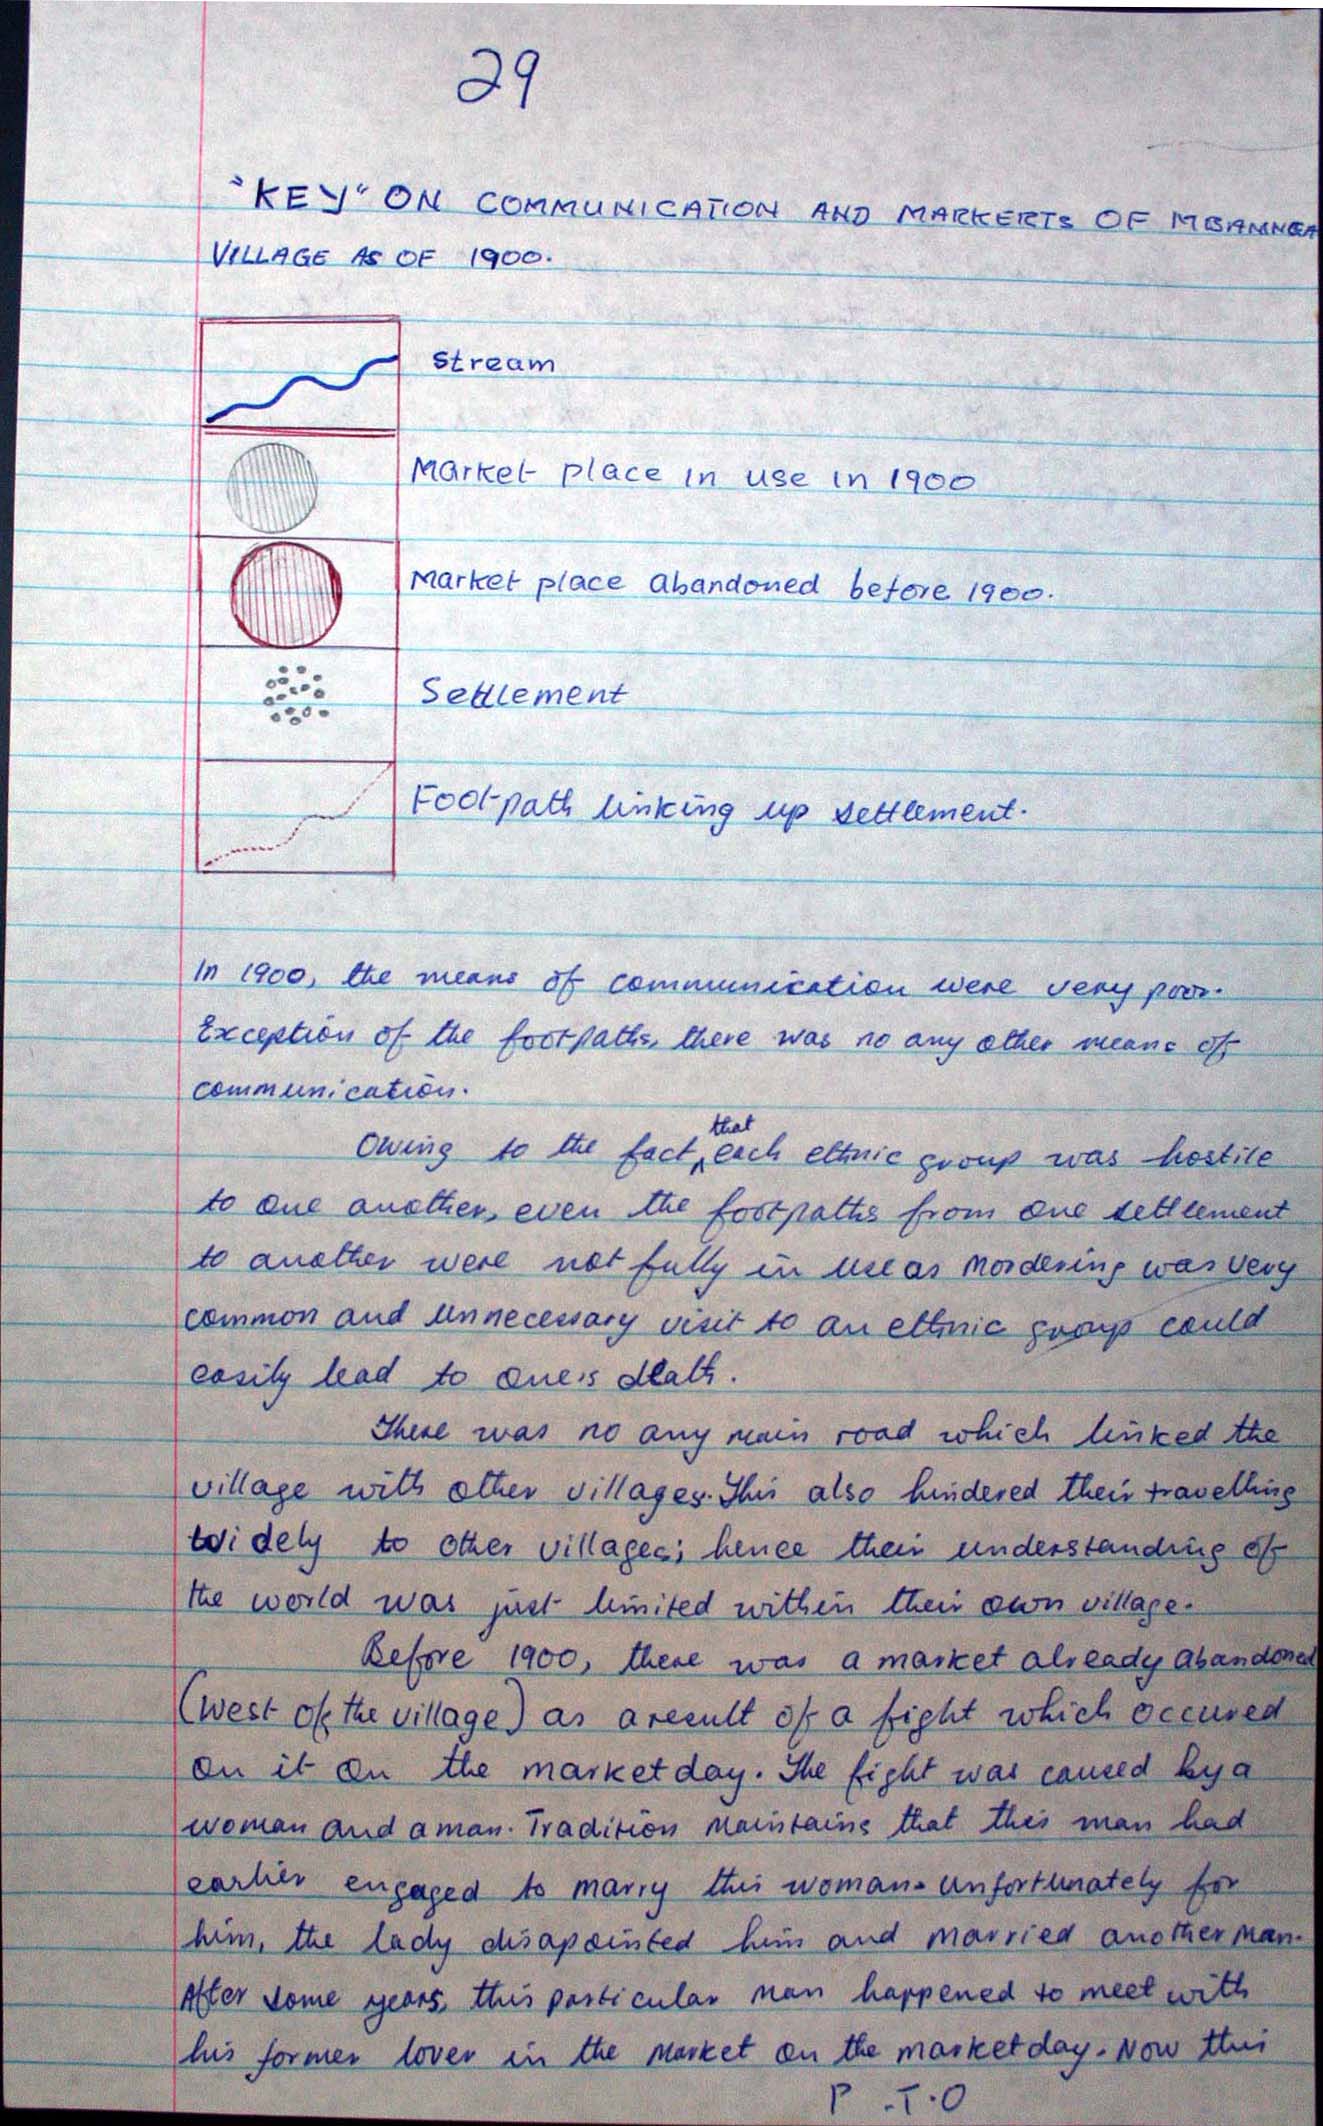 29
"KEY" ON COMMUNICATION AND MARKERTS OF MBAMNGA
VILLAGE AS OF 1900.
Stream
Market place in use in 1900
Market place abandoned before 1900.
Settlement
Footpath linking up settlement.
In 1900, the means of communication were very poor.
Exception of the footpaths, there was no any other means of
communication.
Owing to the fact that each ethnic group was hostile
to one another, even the footpaths from one settlement
to another were not fully in use as mordering was very
common and unnecessary visit to an ethnic group could
easily lead to one's death.
There was no any main road which linked the
village with other villages. This also hindered their travelling
widely to other villages; hence their understanding of
the world was just limited within their own village.
Before 1900, there was a market already abandoned
(west of the village) as a result of a fight which occured
on it on the market day. The fight was caused by a
woman and a man. Tradition maintains that this man had
earlier engaged to marry this woman. unfortunately for
him, the lady disapointed him and married another man.
After some years, this particular man happened to meet with
his former lover in the market on the market day. Now this
P.T.O